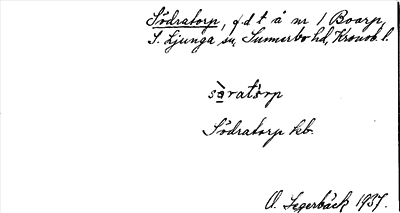 Södratorp, f.d t å nr 1 Boarp,
S. Ljunga sn, Sunnerbo hd, Kronob. l.
sə̀ratårp
Södratorp kb.
O. Segerbäck 1937.